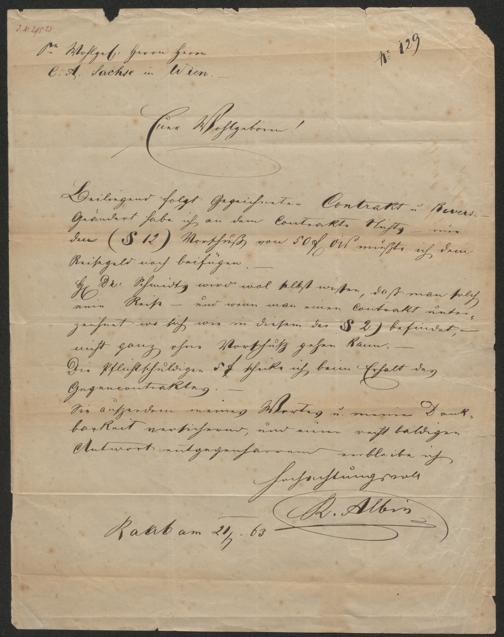 Sr Wohlgeb. Herrn Herrn
C. A. Sachse in Wien.
No 129
Euer Wohlgeboren!
Beiliegend folgt Gezeichneter Contrakt u Revers.
Geändert habe ich an dem Contrakte Nichts – nur
den (§ 12) Vorschuß von 50 f ÖW müßte ich dem
Reisegeld noch beifügen. —
H. Dr. Schmidt wird wol selbst wissen, daß man solch
eine Reise – und wenn man einen Contrakt unter-
zeichnet wo sich wie in diesem der § 2) befindet, –
nicht ganz ohne Vorschuß gehen kann. —
Die Pflichtschuldigen 5 f schicke ich beim Erhalt des
Gegencontraktes. —
Sie außerdem meines Wortes u. meiner Dank-
barkeit versichernd, und einer recht baldigen
Antwort entgegenharrend verbleibe ich
Hochachtungsvoll
R. Albin
Raab am 63